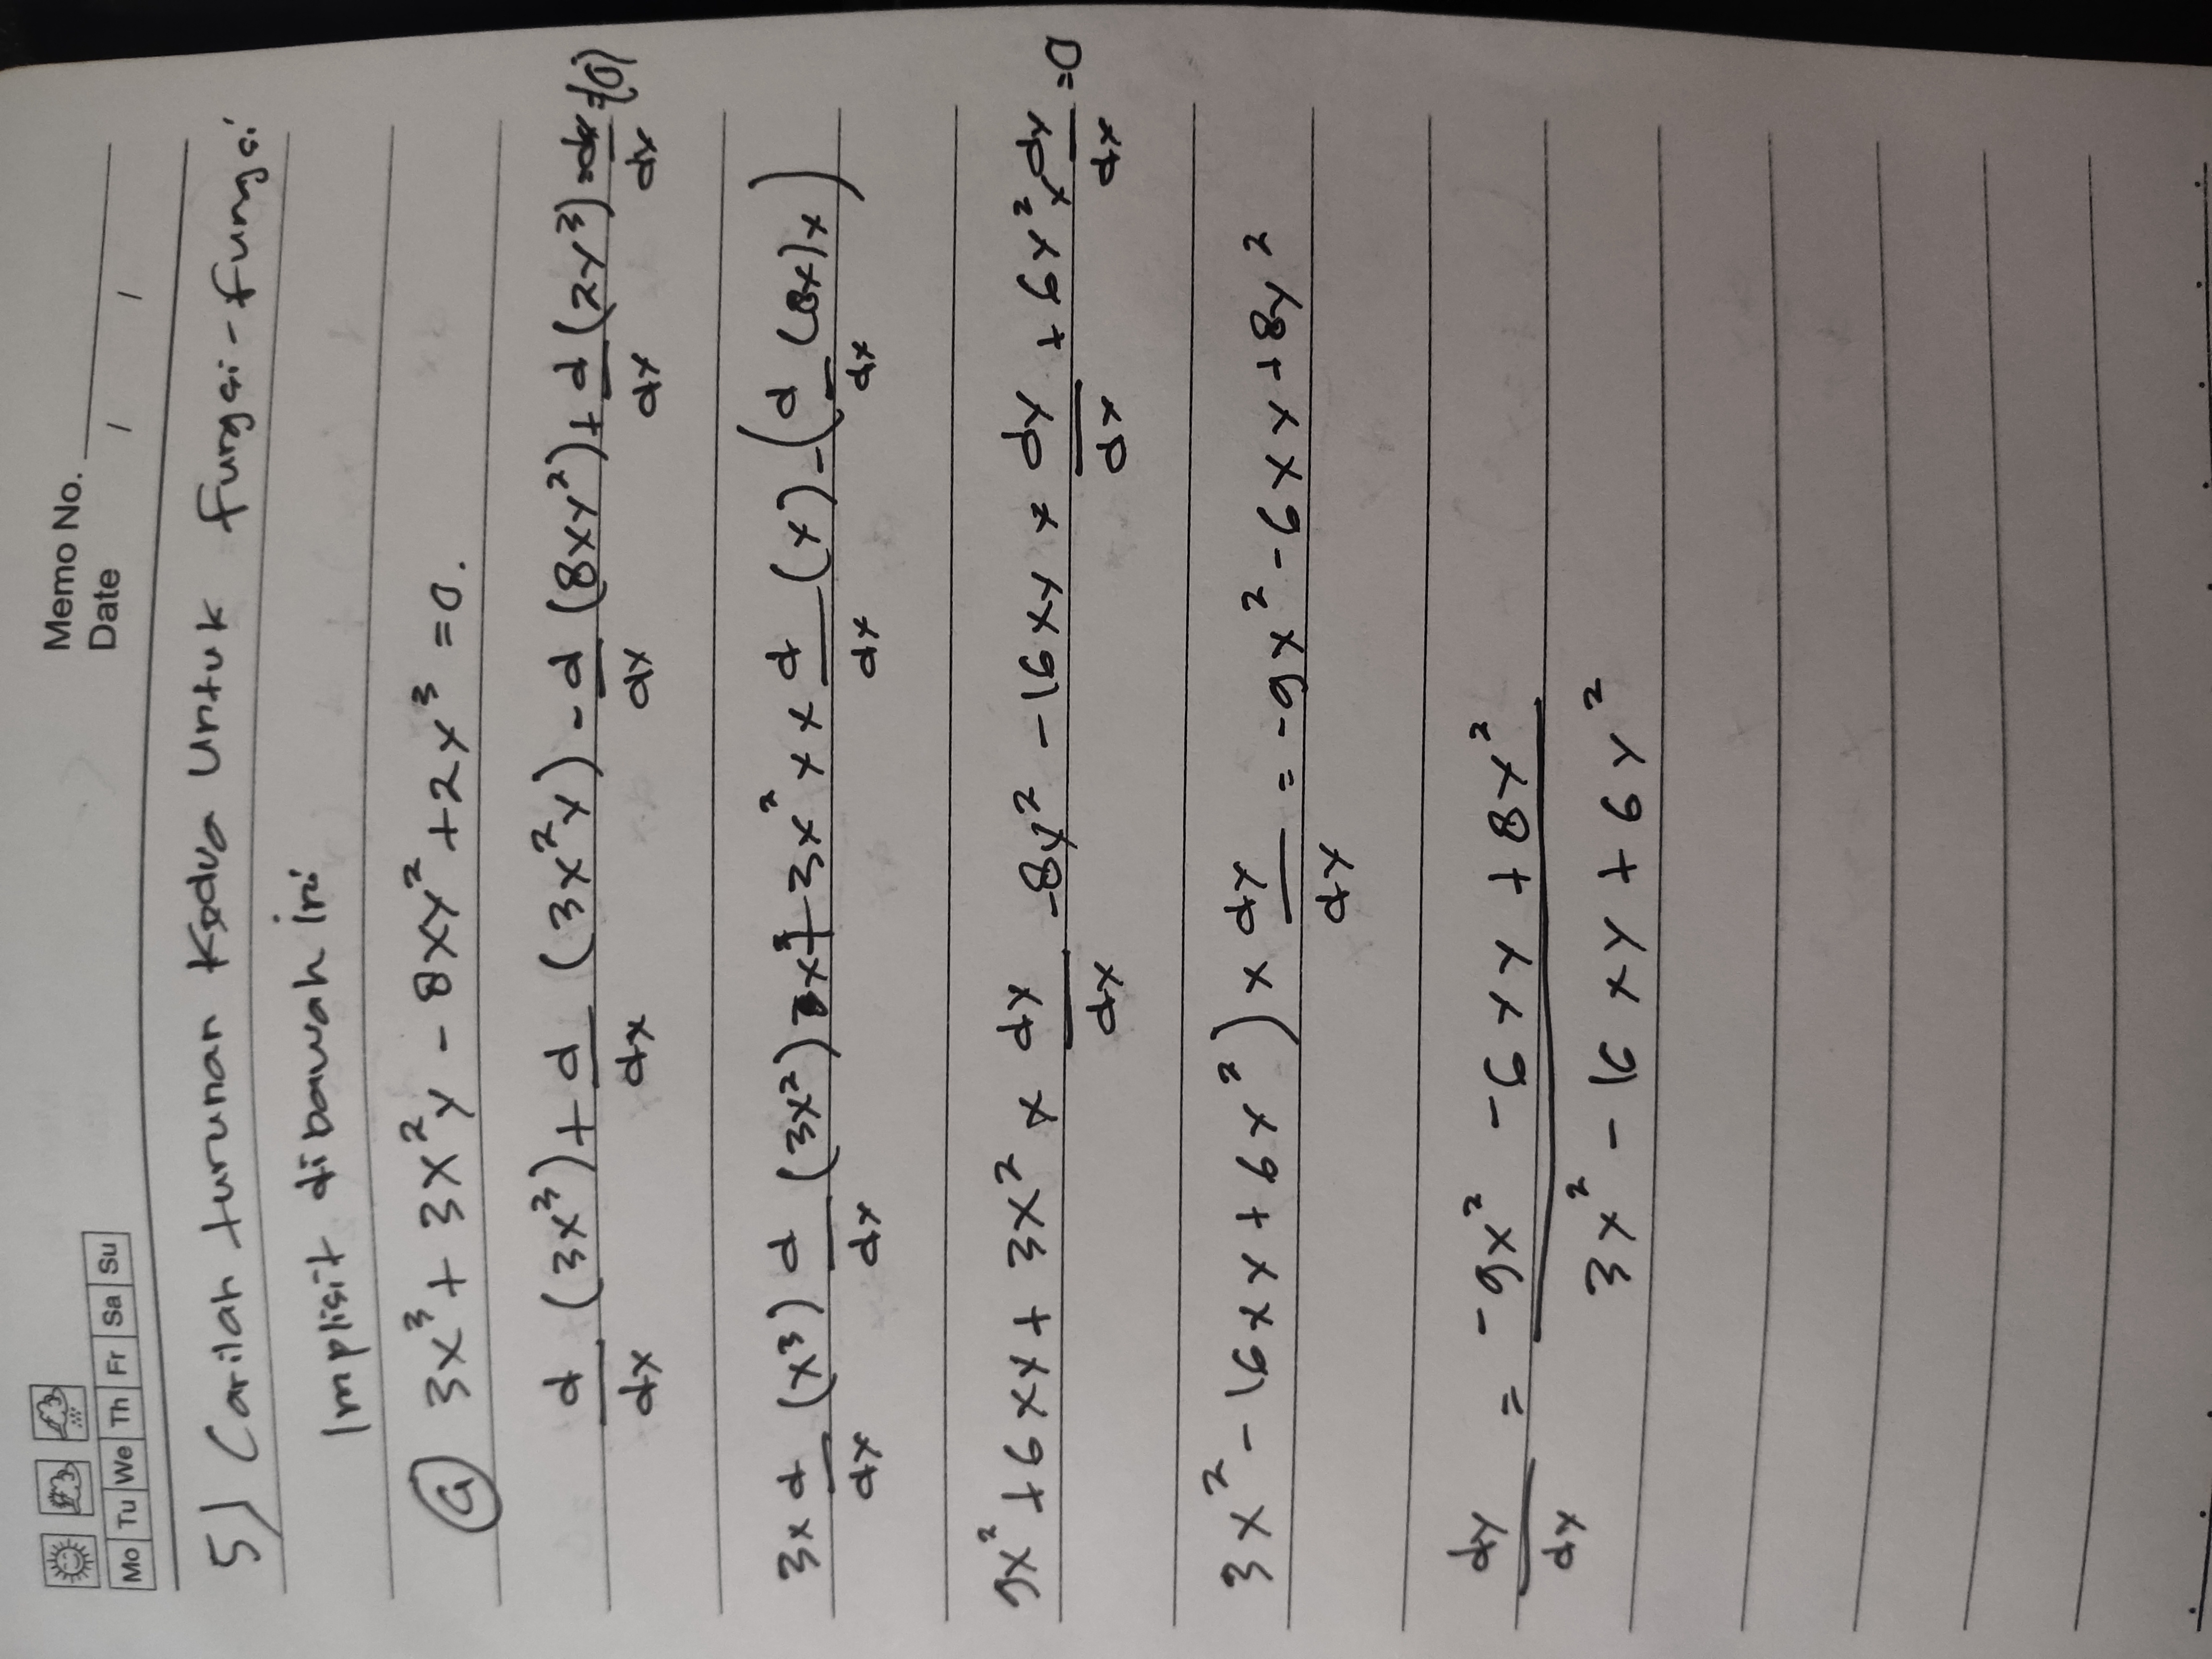 Memo No.
Date / /
Mo Tu We Th Fr Sa Su
5) Carilah turunan Kedua Untuk fungsi-fungsi
Implisit dibawah ini
a 3x³ + 3x²y - 8xy² + 2y³ = 0.
d/dx (3x³) + d/dx (3x²y) - d/dx (8xy²) + d/dx (2y³) = d/dx (0)
3x d/dx (x³) d/dx (3x²) + 3x² x x d/dx (x) - (d/dx (8x) x)
9x² + 6xy + 3x² x dy/dx - 8y² - 16xy x dy/dx + 6y² x dy/dx = 0
3x² - 16xy + 6y²) x dy/dx = -9x² - 6xy + 8y²
dy/dx = -9x² - 6xy + 8y² / 3x² - 16xy + 6y²